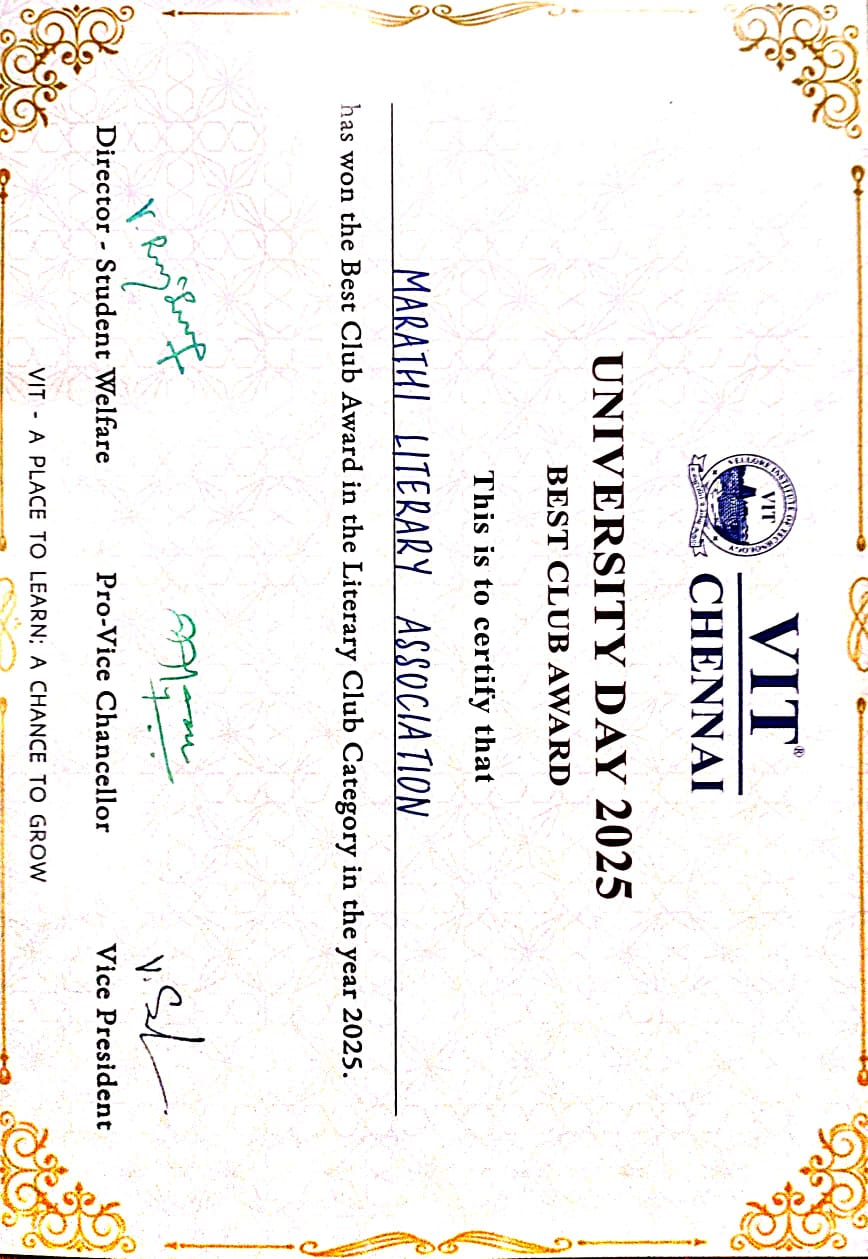 VELLORE INSTITUTE OF TECHNOLOGY
VIT
VIT®
CHENNAI
UNIVERSITY DAY 2025
BEST CLUB AWARD
This is to certify that
MARATHI LITERARY ASSOCIATION
has won the Best Club Award in the Literary Club Category in the year 2025.
Director - Student Welfare Pro-Vice Chancellor Vice President
VIT - A PLACE TO LEARN; A CHANCE TO GROW